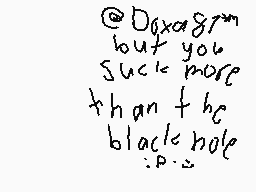 but you
suck more
than the
black hole
:P :)